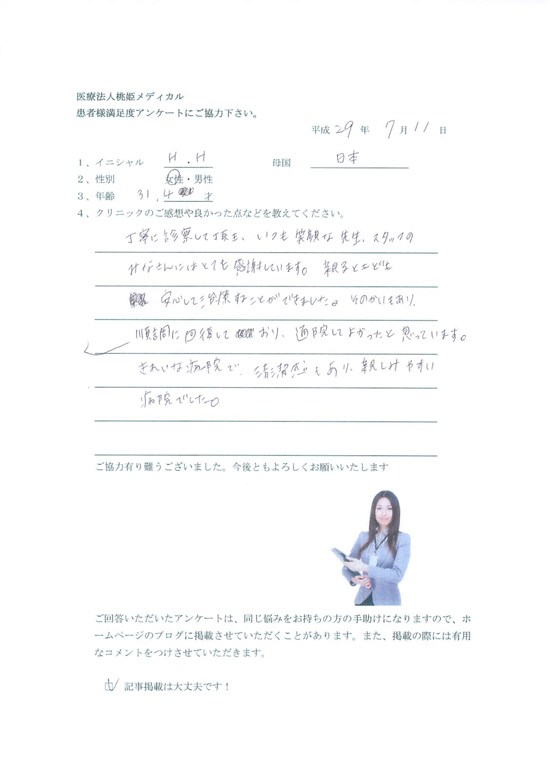 医療法人桃姫メディカル
患者様満足度アンケートにご協力下さい。
平成 29 年 7 月 11 日
1、イニシャル H . H 母国 日本
2、性別 女性・男性
3、年齢 31, 4 才
4、クリニックのご感想や良かった点などを教えてください。
丁寧に診察して頂き、いつも笑顔な先生、スタッフの
みなさんにはとても感謝しています。親子ともども
安心して診療することができました。そのかいもあり、
順調に回復しており、通院してよかったと思っています。
きれいな病院で、清潔感もあり、親しみやすい
病院でした。
ご協力有り難うございました。今後ともよろしくお願いいたします
ご回答いただいたアンケートは、同じ悩みをお持ちの方の手助けになりますので、ホ
ームページのブログに掲載させていただくことがあります。また、掲載の際には有用
なコメントをつけさせていただきます。
記事掲載は大丈夫です！